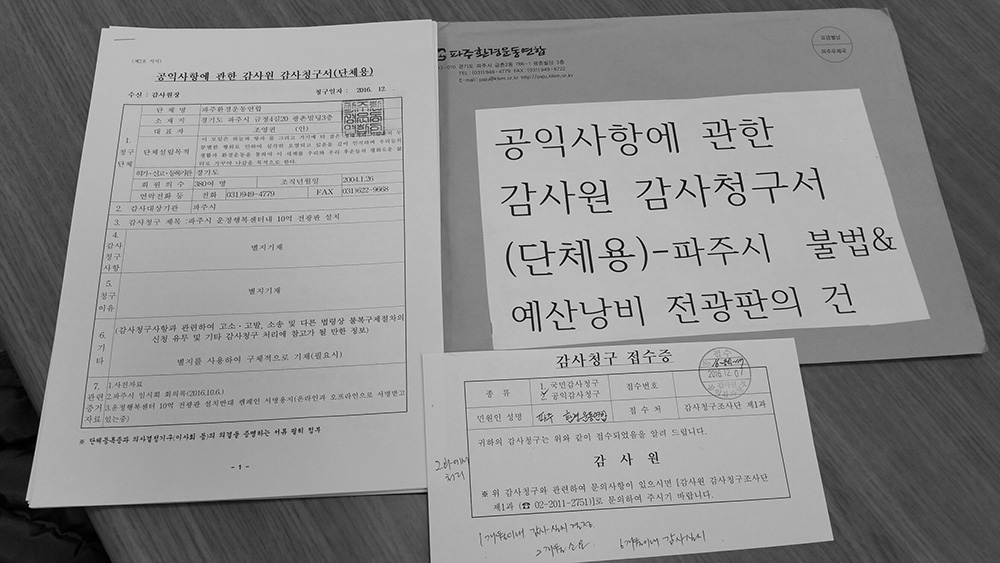 (제2호 서식)
공익사항에 관한 감사원 감사청구서(단체용)
수신 : 감사원장
청구일자 : 2016. 12. .
1. 청구 단체
단 체 명 파주환경운동연합
소 재 지 경기도 파주시 금정4길20 광촌빌딩3층
대 표 자 조영권 (인)
단체설립목적
생활과 환경운동을 통하여 이 세계를 우리와 우리 후손들이 행복로운 삶
터로 가꾸어 나감을 목적으로 한다.
허가·신고·등록기관 경기도
회 원 의 수 380여 명 조직년월일 2004.1.26
연락전화 등 전화 031)949-4779 FAX 031)622-9668
2. 감사대상기관 파주시
3. 감사청구 제목 :파주시 운정행복센터내 10억 전광판 설치
4. 감사 청구 사항
별지기재
5. 청구 이유
별지기재
6. 기 타
(감사청구사항과 관련하여 고소·고발, 소송 및 다른 법령상 불복구제절차의
신청 유무 및 기타 감사청구 처리에 참고가 될 만한 정보)
별지를 사용하여 구체적으로 기재(필요시)
7. 관련 증거 자료
1.사전자료
2.파주시 임시회 회의록(2016.10.6.)
3.운정행복센터 10억 전광판 설치반대 캠페인 서명용지(온라인과 오프라인으로 서명받고
있는중)
※ 단체등록증과 의사결정기구(이사회 등)의 의결을 증명하는 서류 필히 첨부
- 1 -
파주환경운동연합
경기도 파주시 금촌2동 796-1 광촌빌딩 3층
TEL : (031) 949 - 4779 FAX : (031) 949-6722
E-mail : paju@kfem.or.kr http://paju.kfem.or.kr
요금별납
파주우체국
공익사항에 관한
감사원 감사청구서
(단체용)-파주시 불법&
예산낭비 전광판의 건
감사청구 접수증
접수
2016. 12. 0
종 류 1. 국민감사청구
2. 공익감사청구
접수번호
민원인 성명 파주 환경운동연합 접 수 처 감사청구조사단 제1과
귀하의 감사청구는 위와 같이 접수되었음을 알려 드립니다.
감 사 원
※ 위 감사청구와 관련하여 문의사항이 있으시면 [감사원 감사청구조사단
제1과 (☎ 02-2011-2751)]로 문의하여 주시기 바랍니다.
2과에서
처리
1개월이내 감사실시 결정
2개월 소요 6개월이내 감사실시